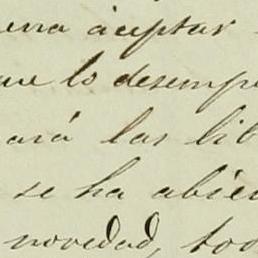 era aceptar
ue lo desempe
ará las lib
se ha abie
novedad, too